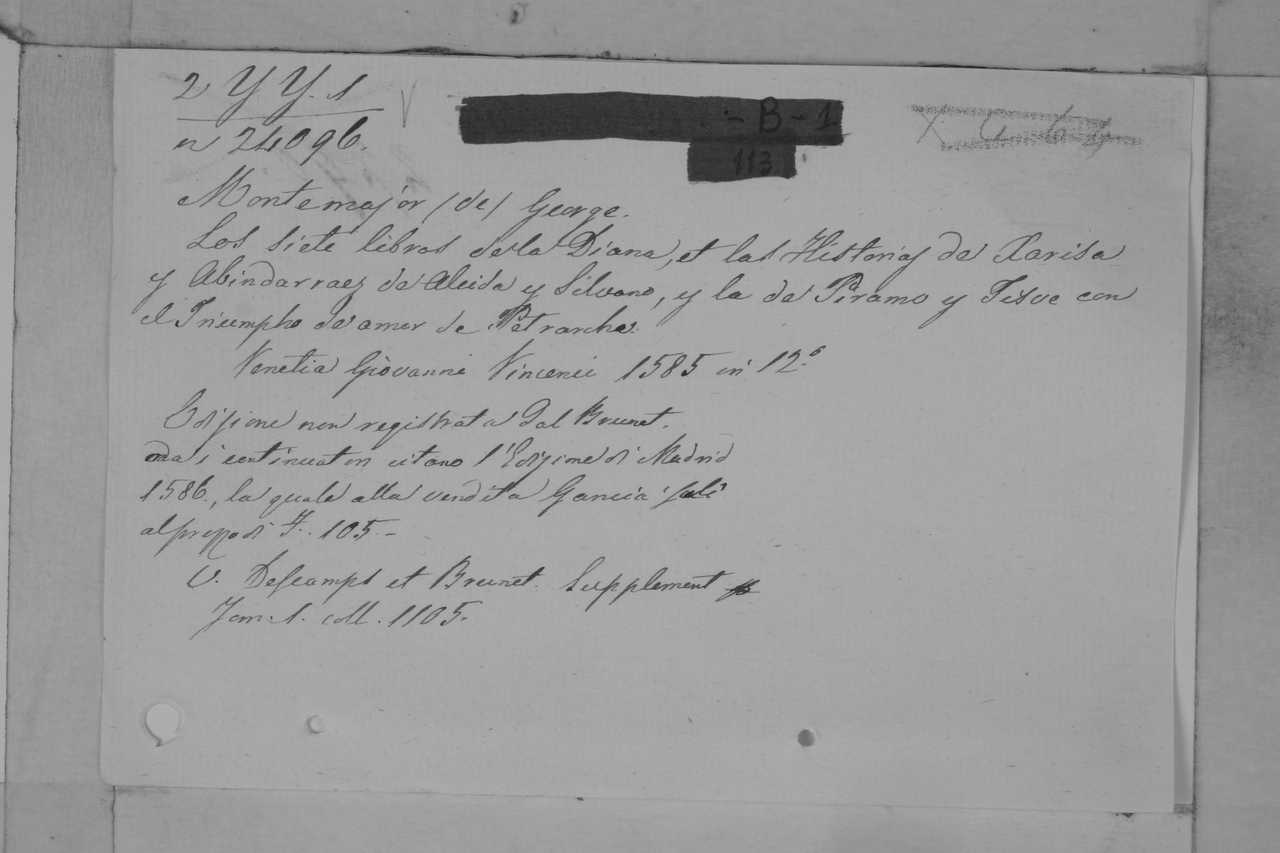 2 Y Y. 1
- B - 1
n 24096.
113
Montemajór (de) George.
Los siete libros de la Diana, et las Historias de Xarisa
y Abindarraez de Alcida y Silvano, y la de Piramo y Tisve con
el Triumpho de amor de Petrarcha.
Venetia Giovanni Vincenci 1585 in 12.º
Edizione non registrata dal Brunet.
ma i continuatori citano l'Edizione di Madrid
1586., la quale alla vendita Garcia salì
al prezzo di F. 105.-
V. Descamps et Brunet. Supplement
Tom. 1. coll. 1105.